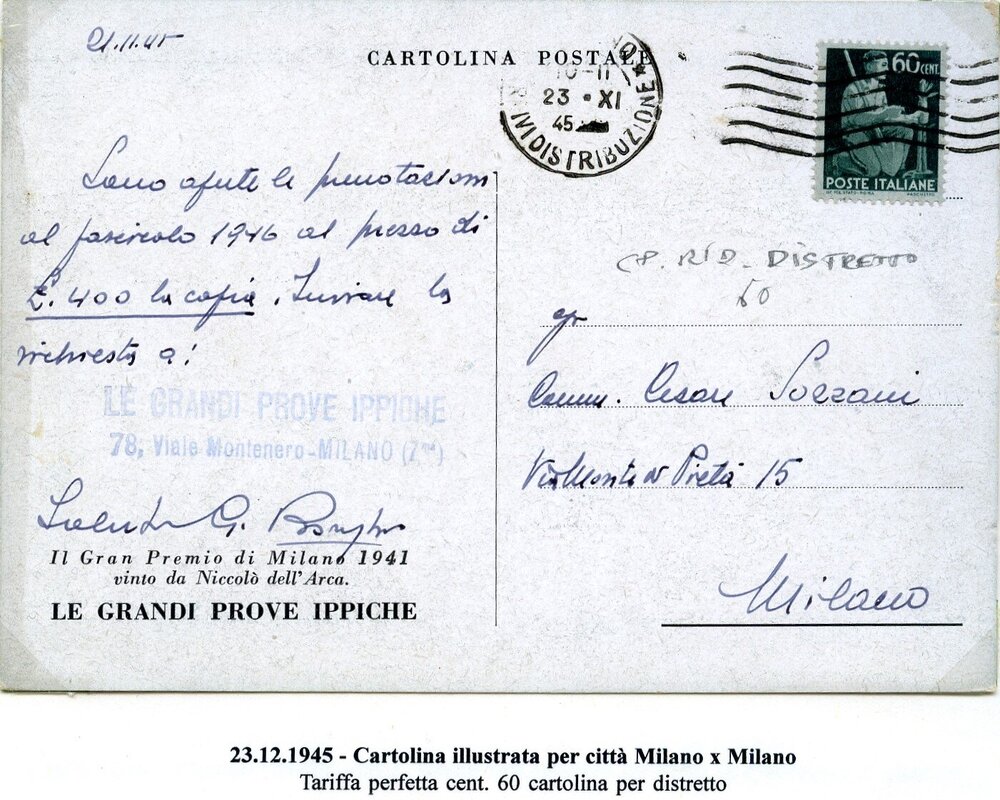 21.11.45
CARTOLINA POSTALE
23 • XI
45
DISTRIBUZIONE
60 CENT.
POSTE ITALIANE
Sono aperte le prenotazioni
al fascicolo 1946 al prezzo di
£. 400 la copia. Inviare la
richiesta a:
LE GRANDI PROVE IPPICHE
78, Viale Montenero-MILANO
G.
Il Gran Premio di Milano 1941
vinto da Niccolò dell'Arca.
LE GRANDI PROVE IPPICHE
CP. RID. DISTRETTO
60
Comm. Cesare Sozzani
Via Monte di Pietà 15
Milano
23.12.1945 - Cartolina illustrata per città Milano x Milano
Tariffa perfetta cent. 60 cartolina per distretto